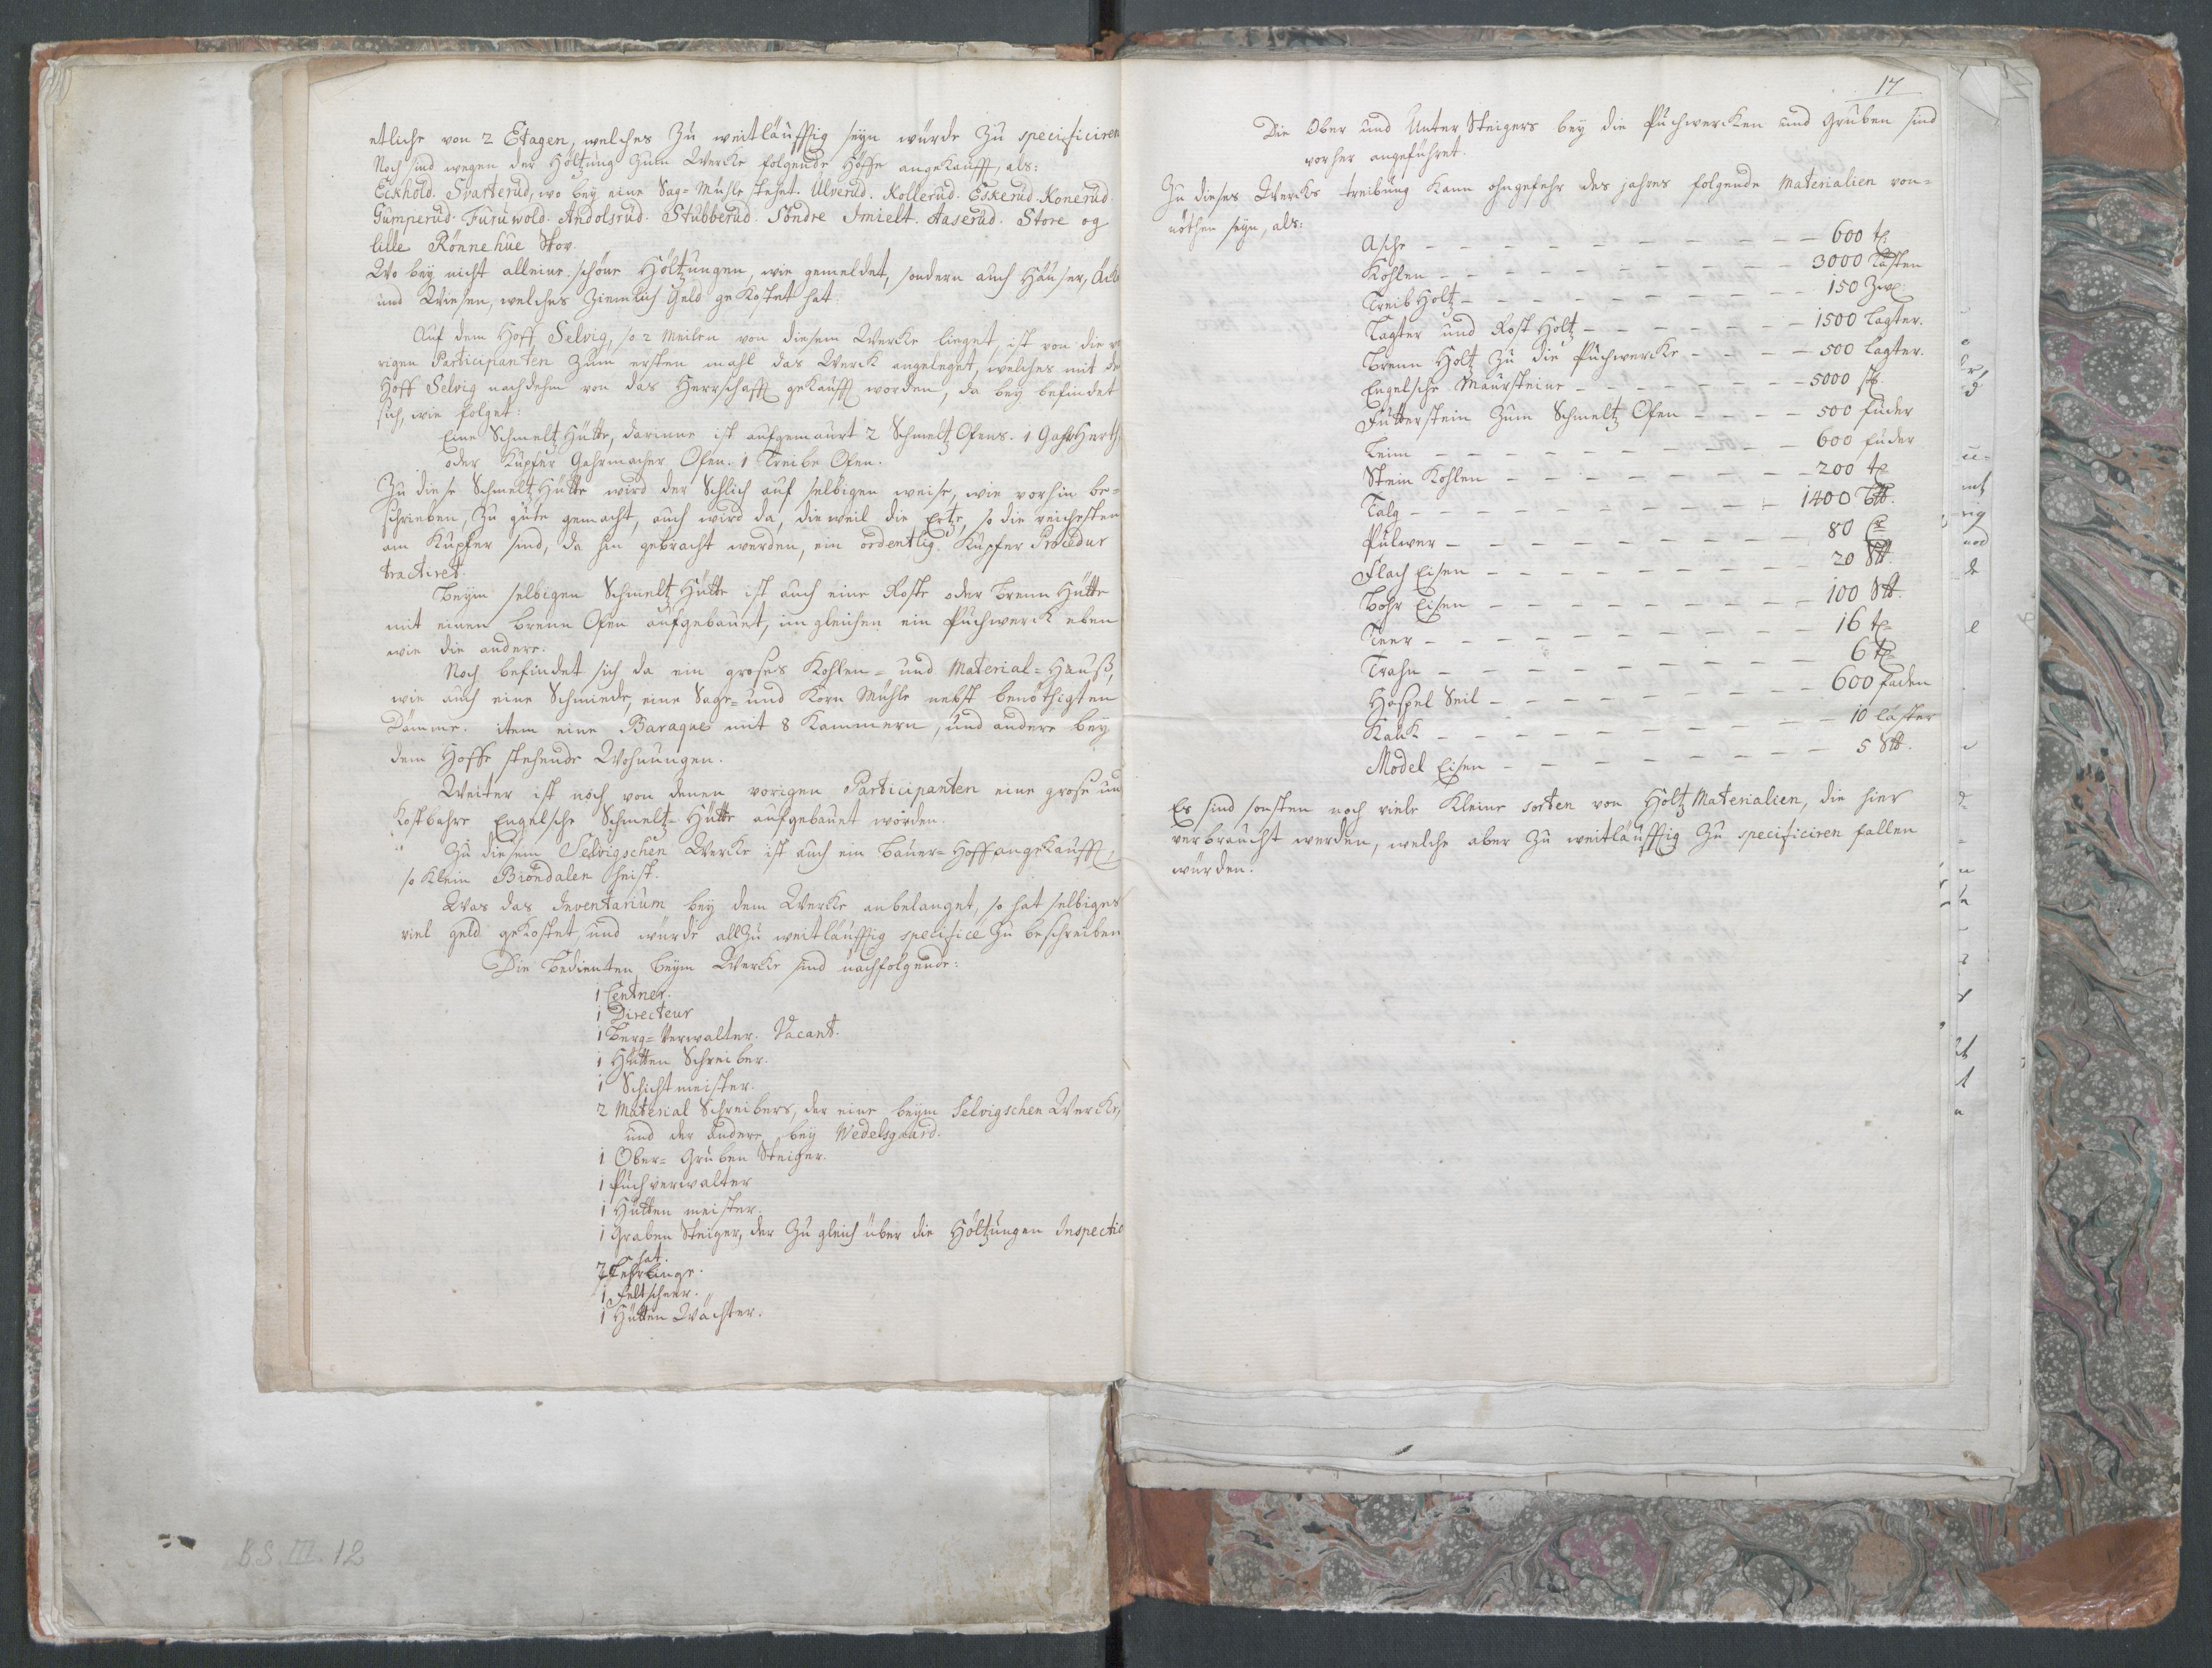 etliche von 2 Etagen, welches Zu weitläuffig seyn würde Zu specificiren
Noch sind wegen der Höltzung Zum Wercke folgende Höffe angekaufft, als:
Eckhold. Svarterud, wo bey eine Sag=Mühle stehet. Ulverud. Kollerud. Eskerud. Konerud.
Gumperud. Furuwold. Andolsrud. Stubberud. Söndre Smielt. Aaserud. Store og
lille Rönnehue Skov.
Wo bey nicht alleine schöne Höltzungen, wie gemeldet, sondern auch Häuser, Äck
und Wiesen, welches Ziemlich Geld gekostet hat.
Auf dem Hoff Selvig, so 2 Meilen von diesem Wercke lieget, ist von die vo
rigen Participanten Zum ersten mahl das Werck angeleget, welches mit de
Hoff Selvig nachdehm von das Herrschafft gekaufft worden, da bey befindet
sich, wie folget:
Eine Schmeltz Hütte, darinne ist aufgemaurt 2 Schmeltz Ofens. 1 GahrHerth
oder Kupfer Gahrmacher Ofen. 1 Treibe Ofen.
Zu diese Schmeltz Hütte wird der Schlich auf selbigen weise, wie vorhin be=
schrieben, Zu gute gemacht, auch wird da, dieweil die Ertze, so die reichesten
am Kupfer sind, da hin gebracht werden, ein ordentlig. Kupfer Procedur
tractiret.
Beym selbigen Schmeltz Hütte ist auch eine Roste oder Brenn Hütte
mit einen Brenn Ofen aufgebauet, im gleichen ein Puchwerck eben
wie die andere.
Noch befindet sich da ein groses Kohlen= und Material=Hauß,
wie auch eine Schmiede, eine Sage= und Korn Mühle nebst benöthigten
Dämme. item eine Baraque mit 8 Kammern, und andere bey
dem Hoffe stehende Wohnungen.
Weiter ist noch von denen vorigen Participanten eine grose un
Kostbahre Engelsche Schmeltz=Hütte aufgebauet worden.
Zu diesem Selvigschen Wercke ist auch ein Bauer=Hoff angekaufft,
so Klein Biöndalen heist.
Was das Inventarium bey dem Wercke anbelanget, so hat selbiges
viel geld gekostet, und würde allZu weitläuffig specifice Zu beschreiben
Die Bedienten beym Wercke sind nachfolgende:
1 Centner.
1 Directeur
1 Berg=Verwalter. Vacant.
1 Hütten Schreiber.
1 Schichtmeister.
2 Material Schreibers, der eine beym Selvigschen Wercke,
und der andere bey Wedelsgaard.
1 Ober=Gruben Steiger.
1 Puchverwalter
1 Hütten meister.
1 Graben Steiger, der Zugleich über die Höltzungen Inspectio
hat.
7 Lehrlinge.
1 Feltscheer.
1 Hütten Wächter.
17
Die Ober und Unter Steigers bey die Puchwercken und Gruben sind
vorher angeführet.
Zu dieses Wercks treibung kann ohngefehr des jahres folgende Materialien von=
nöthen seyn, als:
Asche – – – 600 t
Kohlen – – – 3000 Lästen
Treib Holtz – – – 150
Lagter und Rost Holtz – – – 1500 Lagter.
Brenn Holtz Zu die Puchwercke – – – 500 Lagter.
Engelsche Maursteine – – – 5000
Futterstein Zum Schmeltz Ofen – – – 500 fuder
Leim – – – 600 fuder
Stein Kohlen – – – 200 t
Talg – – – 1400
Pulwer – – – 80
Flach Eisen – – – 20
Bohr Eisen – – – 100
Teer – – – 16 t
Trahn – – – 6 t
Haspel Seil – – – 600 faden
Kalck – – – 10 läster
Model Eisen – – – 5
Es sind sonsten noch viele Kleine sorten von Holtz Materialien, die hier
verbraucht werden, welche aber Zu weitläuffig Zu specificiren fallen
würden.
B.S. III. 12